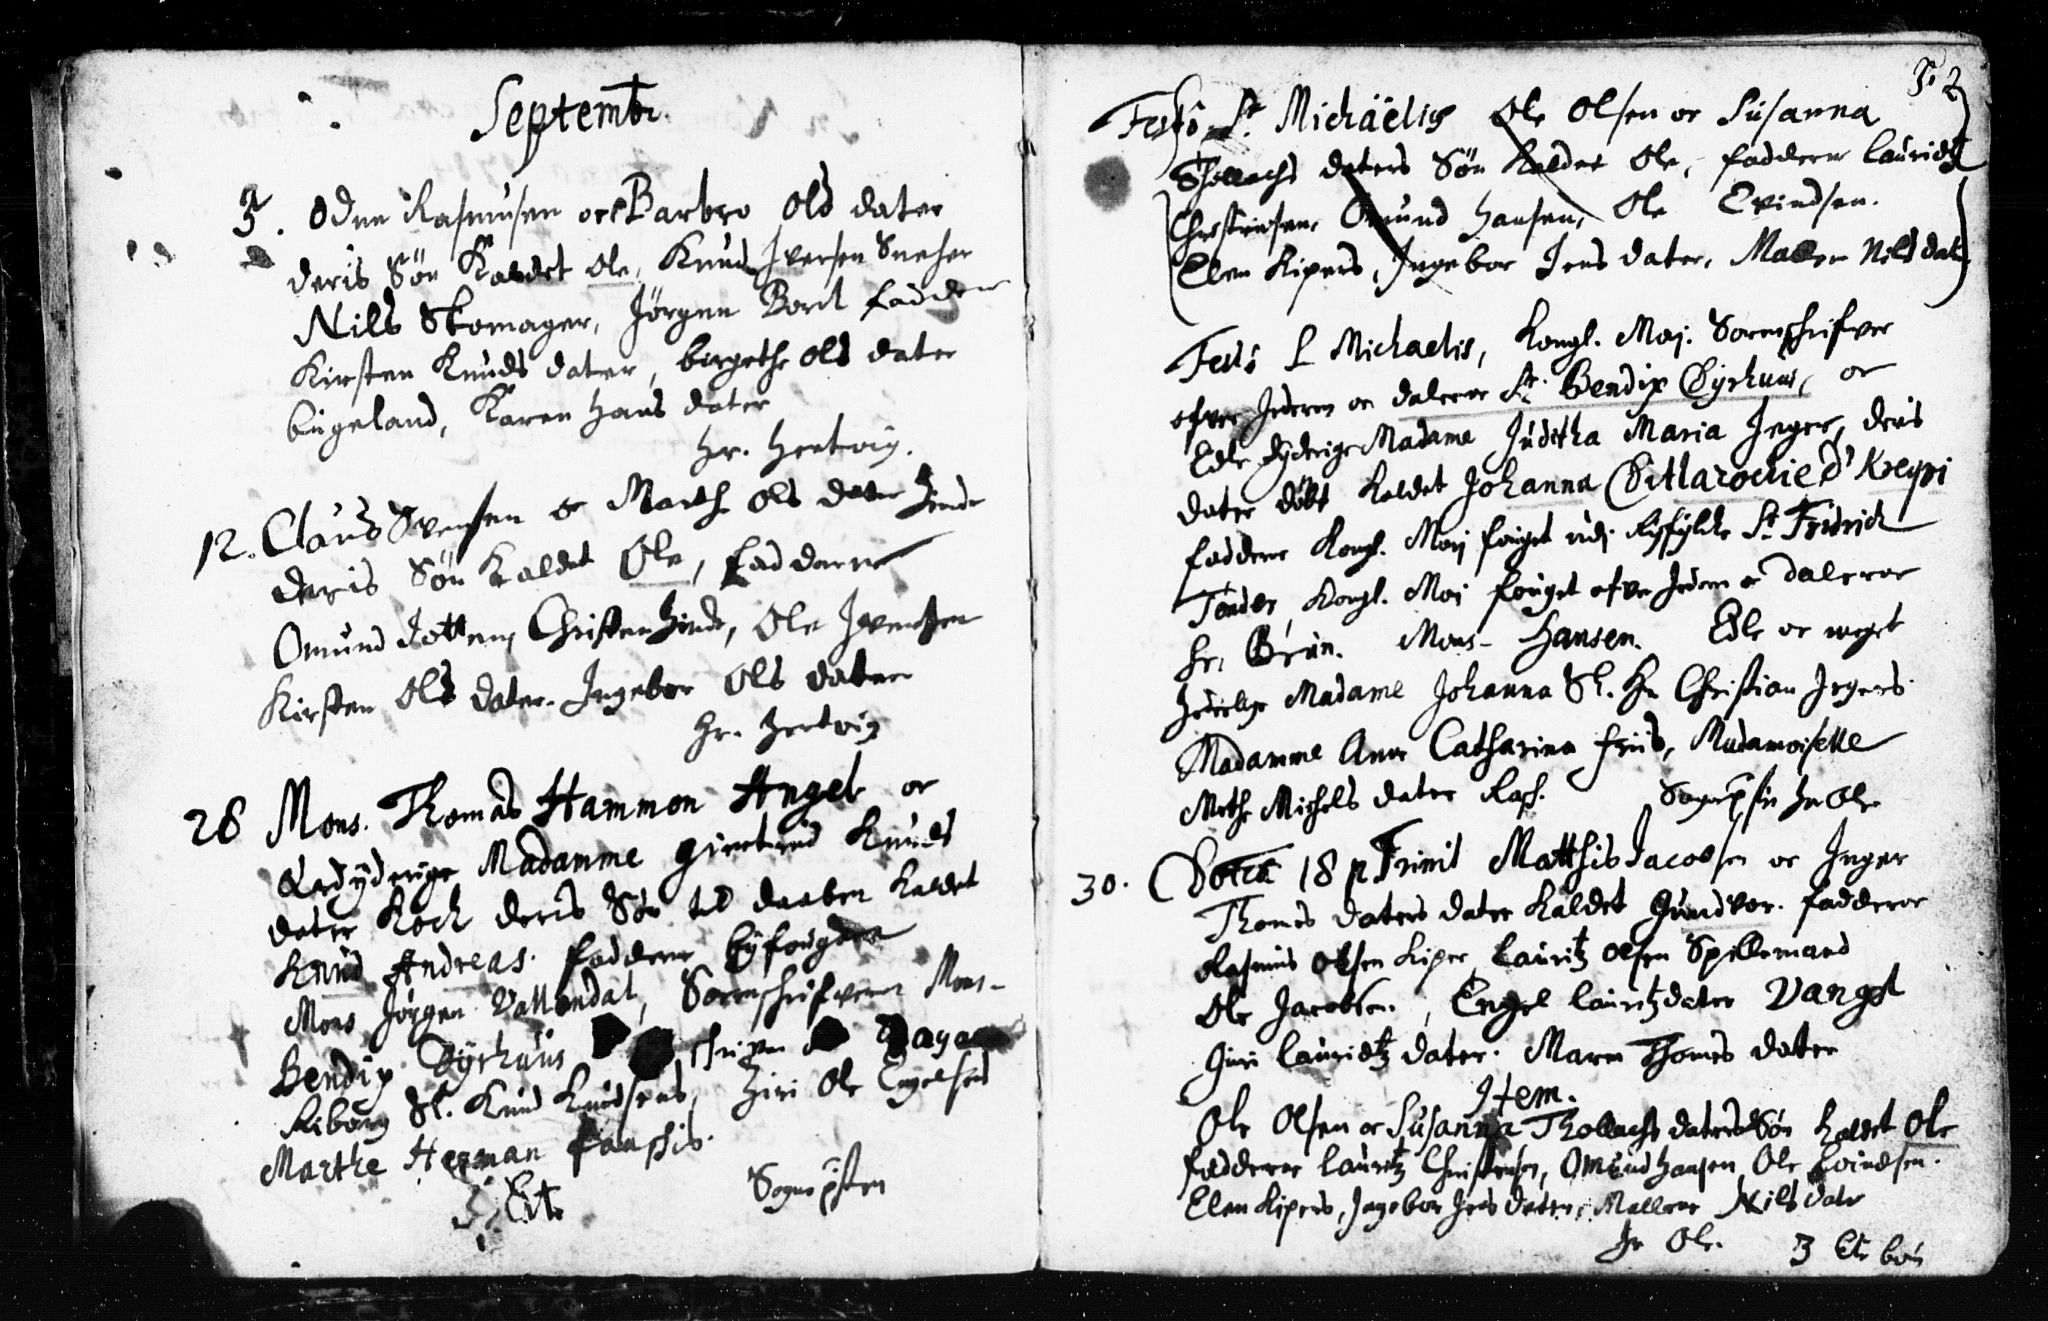 Septembr.
5. Oden Rasmusen oc Barbro Ols dater
deris Søn Kaldet Ole, Knud Iversen Snecher
Nils Skomager, Jørgen Boel fadder
Kirsten Knuds dater, birgethe Ols dater
bugeland, Karen Hans dater
Hr. Hertvig.
12. Claus Svensen oc Marth Ols dater Hinde
deris Søn Kaldet Ole, fadderne
Omund Christen Hinde, Ole Iversen
Kirsten Ols dater. Ingebor Ols dater
Hr. Hertvig
28 Mons. Thomas Hammon Angel oc
Madamme Giertrud Knuds
dater Koch deris Søn til daaben Kaldet
Knud Andreas. faddere byfougden
Mons Jørgen Vallendal, Sorenschrifveren Mons-
Bendix Dyrhuus
Riborg Sl. Knud Knudsens, Ziri Ole Engelsens
Marthe Herman
Sogne psten
52
Festo St. Michaëlis Ole Olsen oc Susanna
Thollachs daters Søn Kaldet Ole, fadderne Lauridtz
Christensen, Omund Hansen, Ole Evindsen.
Elen Kipers, Ingebor Jens dater, Mallen Nils dat.
Festo S Michaelis, Kongl. May. Sorenschrifver
ofver Jederen oc dalerne Sr. Bendix Dyrhuus, oc
Edle dyderige Madame Juditha Maria Jeger, deris
dater døbt Kaldet Johanna d'
faddere Kongl. May fouget udj Ryfylke Sr Fridrich
Tønder, Kongl. May fouget ofver Jederen oc Dalerne
Hr. Brun. Mons- Hansen. Edle oc meget
Madame Johanna Sl. Hr Christian Jegers
Madamme Anne Catharina friis, Madamoiselle
Mette Michels dater Sogne psten Hr Ole
30. Dom 18 p Trinit Matthis Jacobsen oc Inger
Thomes daters dater Kaldet Gundvor. fadderne
Rasmus Olsen Kiper Lauritz Olsen Spillemand
Ole Jacobsen, Engel Lauritz dater Vangst
Guri Lauridtz dater. Maren Thomes dater
Item.
Ole Olsen oc Susanna Thollachs daters Søn Kaldet Ole
fadderne Lauritz Christensen, Omund Hansen Ole Evindsen.
Elen Kipers, Ingebor Jens dater, Mallene Nils dater
Hr Ole. 3